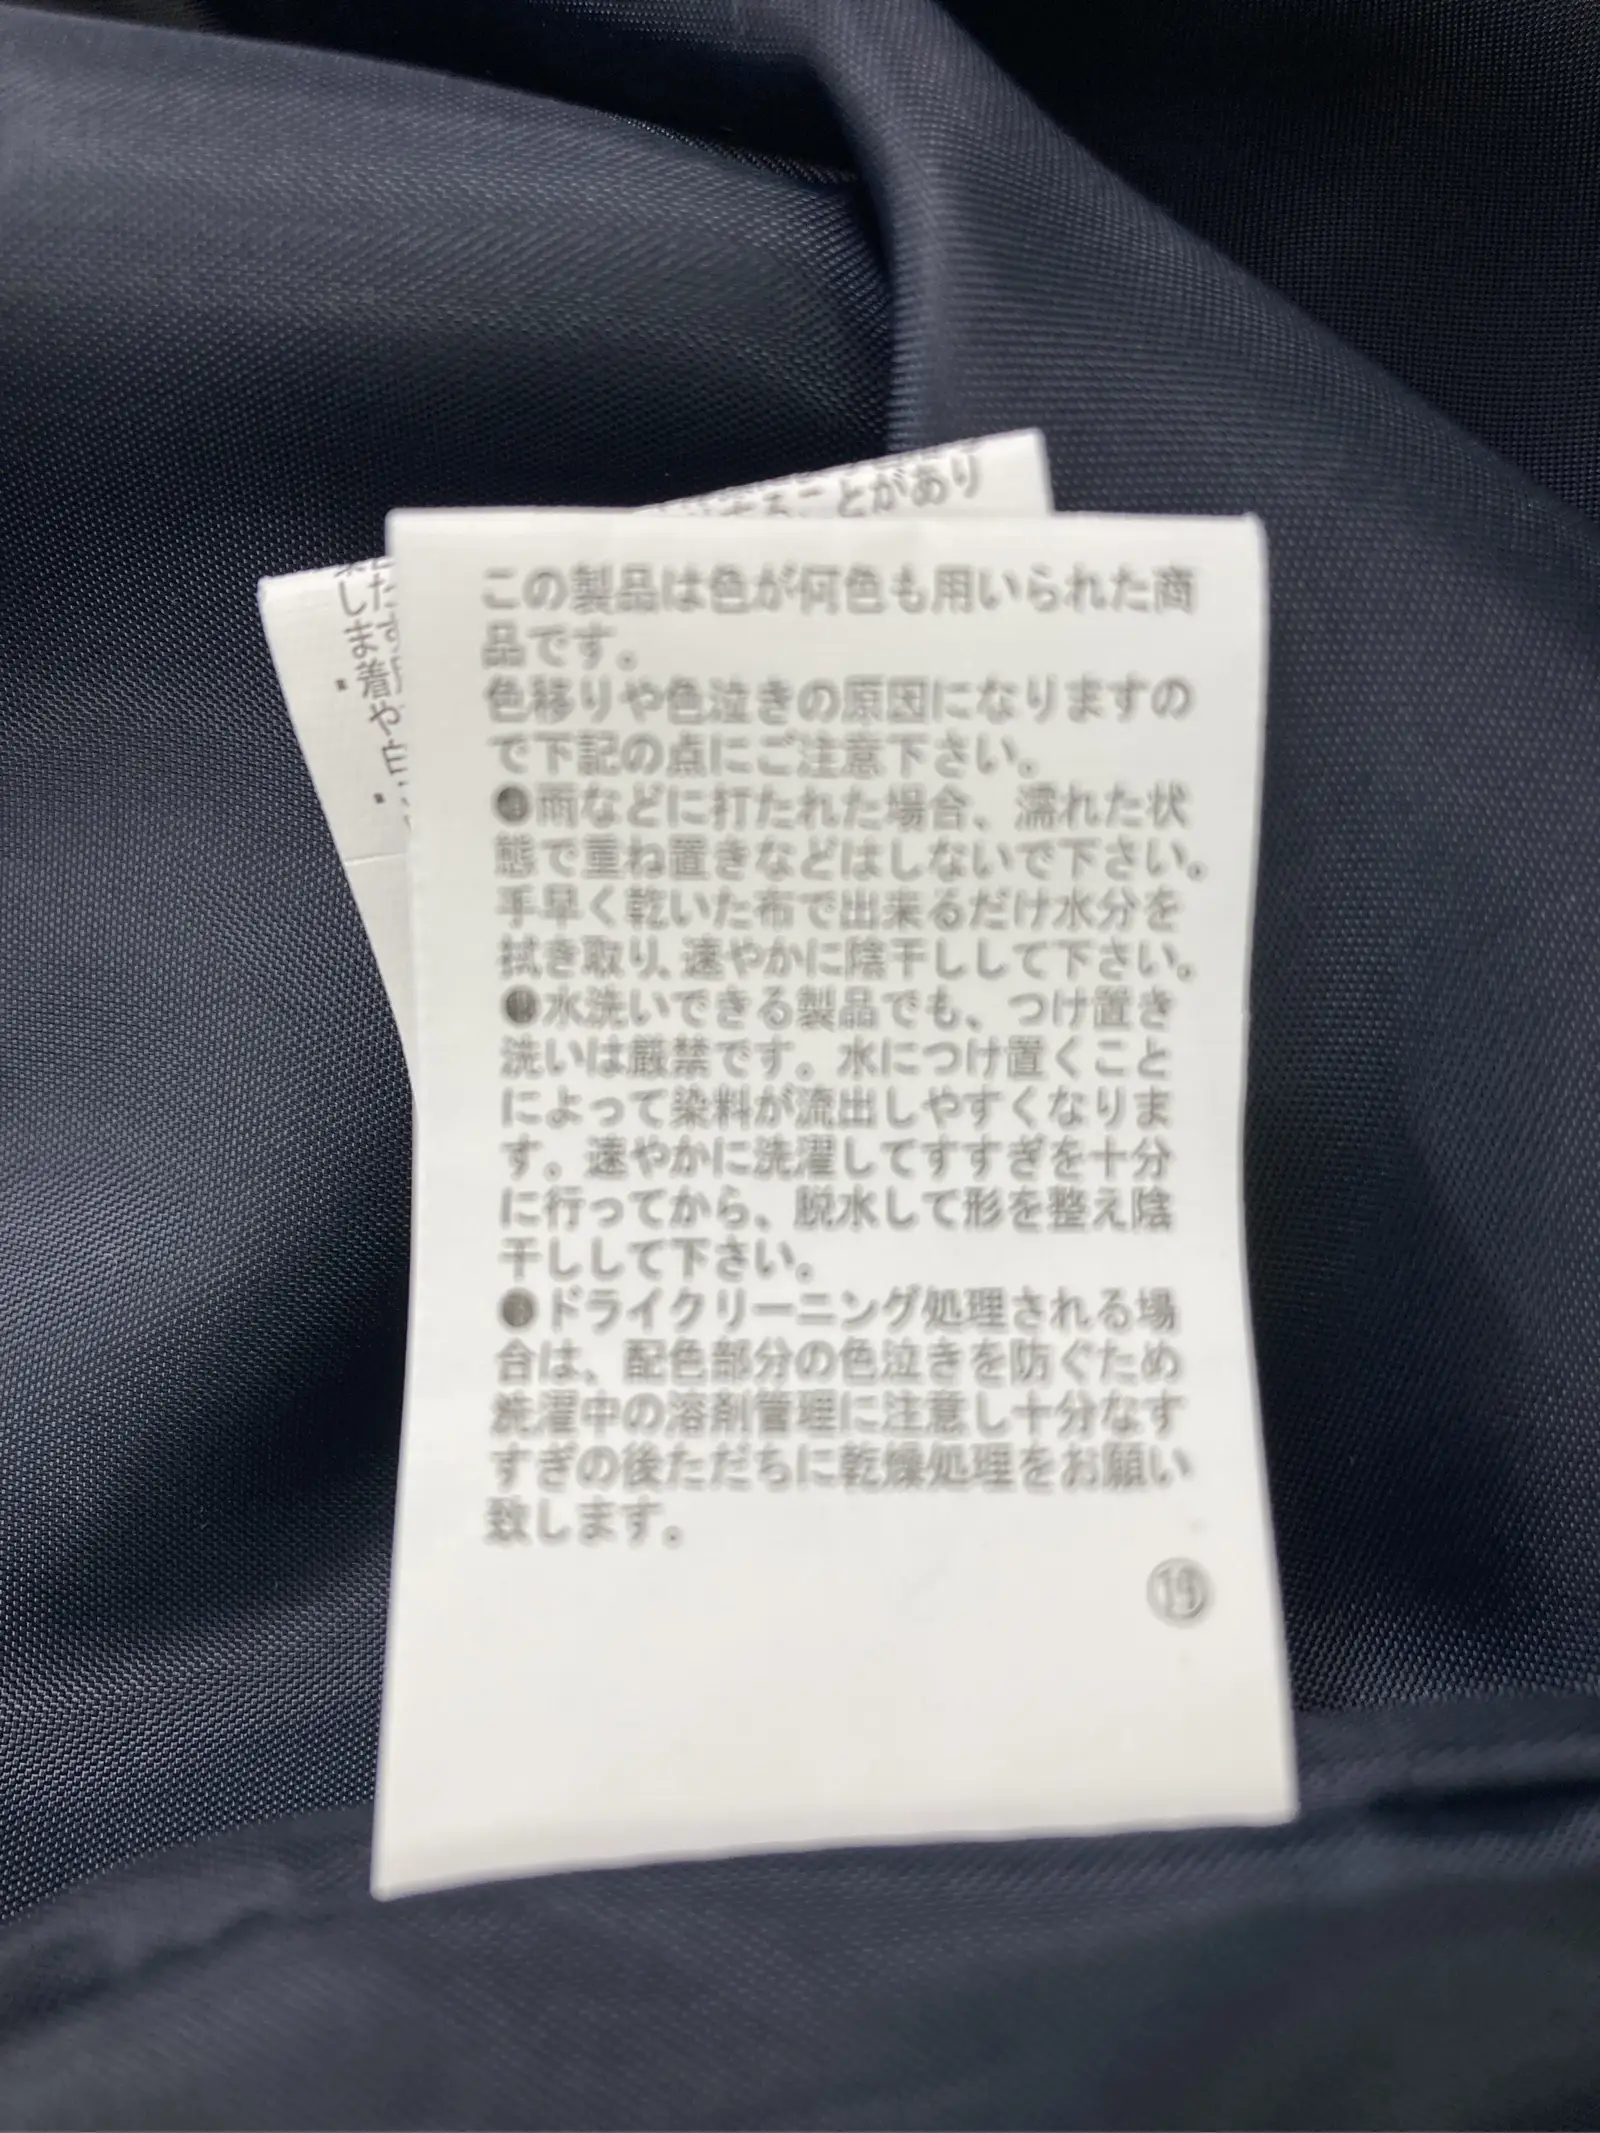 ることがあり
この製品は色が何色も用いられた商
品です。
色移りや色泣きの原因になりますの
で下記の点にご注意下さい。
●雨などに打たれた場合、濡れた状
態で重ね置きなどはしないで下さい。
手早く乾いた布で出来るだけ水分を
拭き取り、速やかに陰干しして下さい。
●水洗いできる製品でも、つけ置き
洗いは厳禁です。水につけ置くこと
によって染料が流出しやすくなりま
す。速やかに洗濯してすすぎを十分
に行ってから、脱水して形を整え陰
干しして下さい。
●ドライクリーニング処理される場
合は、配色部分の色泣きを防ぐため
洗濯中の溶剤管理に注意し十分なす
すぎの後ただちに乾燥処理をお願い
致します。
⑲